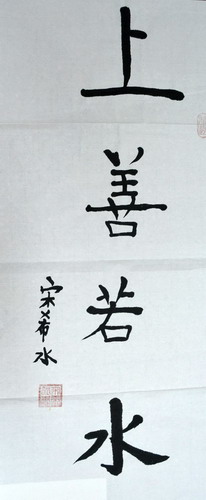 上善若水
宋希水